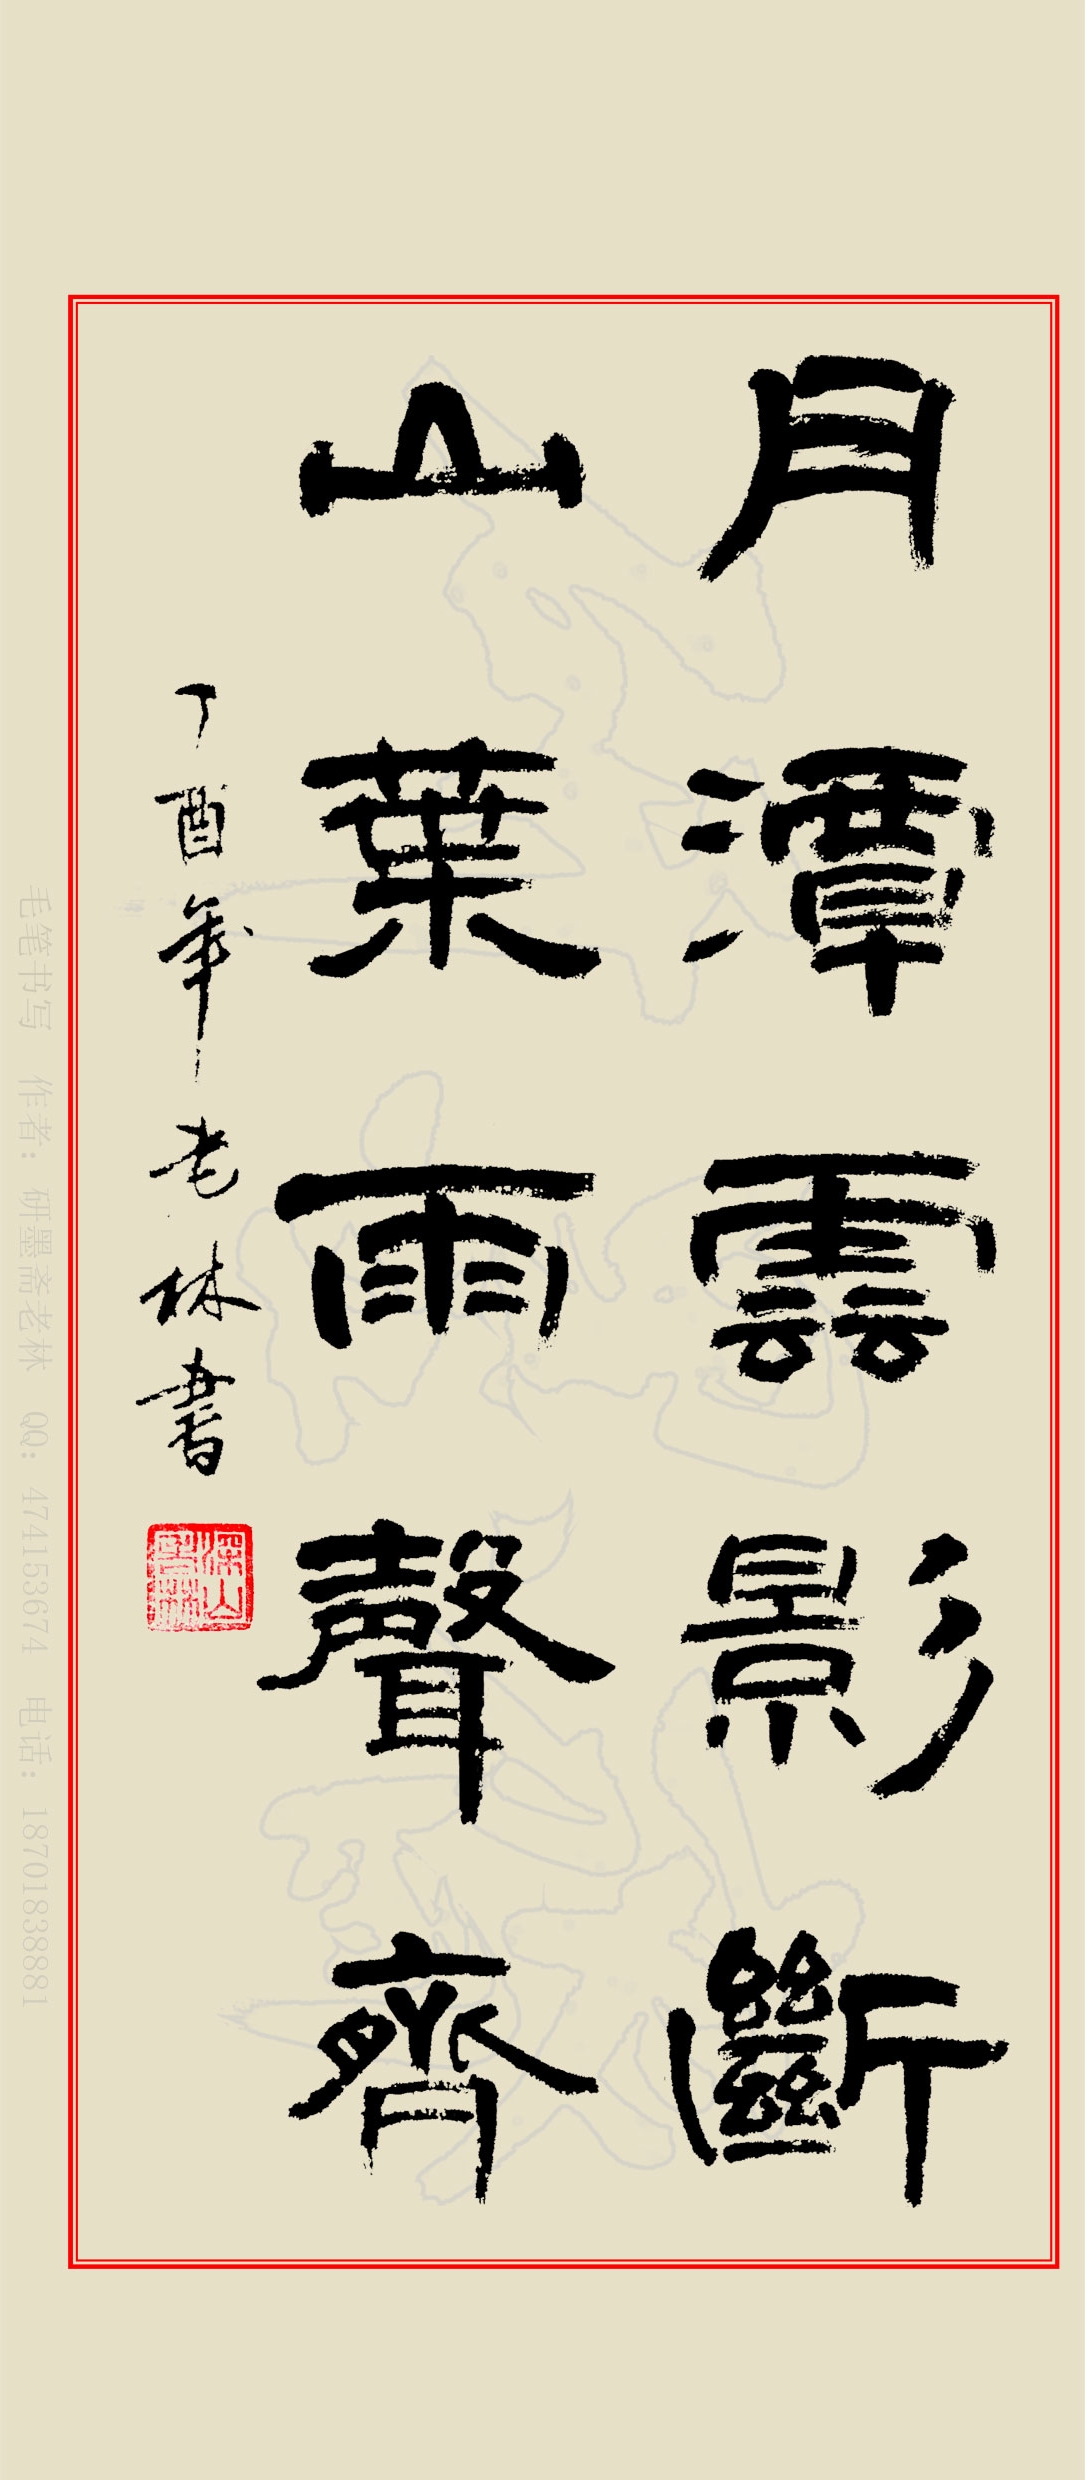 月潭雲影斷
山葉雨聲齊
丁酉年 老林書
深山老林
毛笔书写 作者：研墨斋老林 QQ：474153674 电话：18701838881